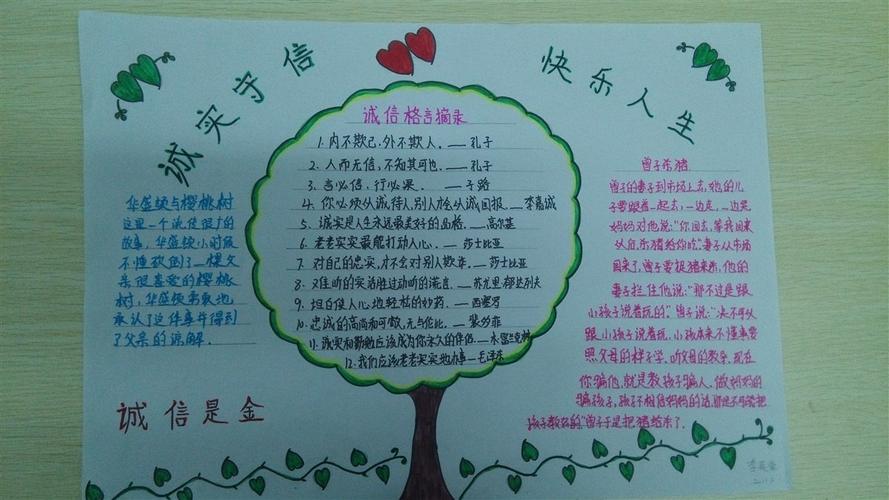 诚实守信
快乐人生
诚信格言摘录
1. 内不欺己,外不欺人。——孔子
2. 人而无信,不知其可也。——孔子
3. 言必信,行必果。——子路
4. 你必须以诚待人,别人才会以诚回报。——李嘉诚
5. 诚实是人生永远最美好的品格。——高尔基
6. 老老实实最能打动人心。——莎士比亚
7. 对自己的忠实,才不会对别人欺诈。——莎士比亚
8. 难听的实话胜过动听的谎言。——苏尤里·都达列夫
9. 坦白使人心地轻松的妙药。——西塞罗
10. 忠诚的高尚和可敬,无与伦比。——裴多菲
11. 诚实和勤勉应该成为你永久的伴侣。——富兰克林
12. 我们应该老老实实地办事——毛泽东
华盛顿与樱桃树
这里一个流传很广的
故事,华盛顿小时候
不懂砍倒了一棵父
亲很喜爱的樱桃
树,华盛顿勇敢地
承认了这件事并得到
了父亲的谅解。
诚信是金
曾子杀猪
曾子的妻子到市场上去,她的儿
子要跟着一起去,一边走,一边哭
妈妈对他说:“你回去,等我回来
以后,杀猪给你吃。”妻子从市场
回来了,曾子要捉猪来杀,他的
妻子拦住他说:“那不过是跟
小孩子说着玩的。”曾子说:“决不可以
跟小孩子说着玩。小孩本来不懂事,要
照父母的样子学,听父母的教导。现在
你骗他,就是教孩子骗人。做妈妈的
骗孩子,孩子不相信妈妈的话,那是不可能把
孩子教好的。”曾子于是把猪给杀了。